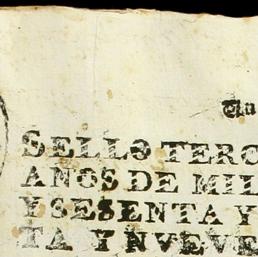 Vn
SELLO TERC
AÑOS DE MIL
Y SESENTA Y
TA Y NVEVE